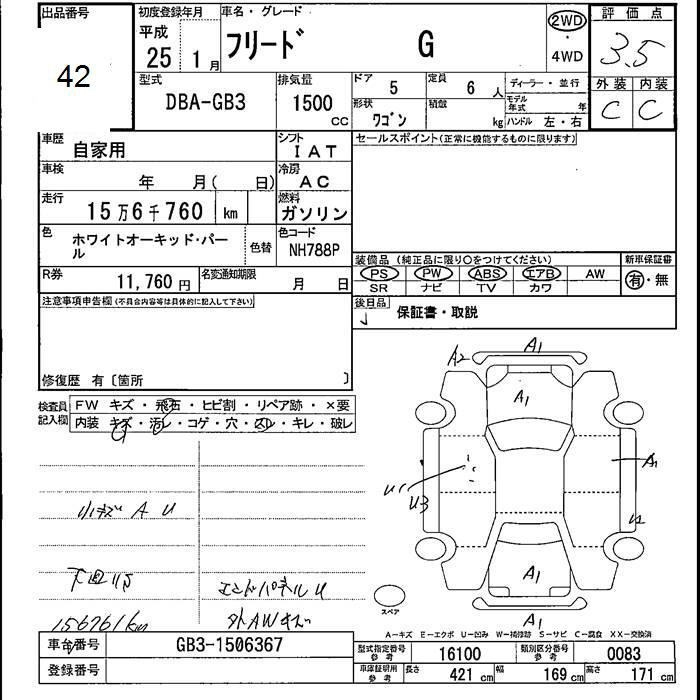 出品番号
42
初度登録年月
平成
25 1月
車名・グレード
フリード G
2WD
・
4WD
評価点
3.5
外装 内装
C C
型式
DBA-GB3
排気量
1500
CC
ドア 5
定員 6人
形状
ワゴン
積載
kg
ディーラー・並行
モデル年式 年
ハンドル 左・右
車歴 自家用
シフト
IAT
セールスポイント(正常に機能するものに限ります)
車検 年 月( 日)
冷房
AC
走行 15万6千760 km
燃料
ガソリン
色 ホワイトオーキッド・パール
色替
色コード
NH788P
装備品 (純正品に限り○をつけてください)
新車保証書
PS PW ABS エアB AW
有・無
SR ナビ TV カワ
R券 11,760円
名変通知期限 月 日
後日品 保証書・取説
注意事項申告欄(不具合内容等は具体的に記入して下さい)
修復歴 有〔箇所 〕
検査員記入欄
FW キズ・飛石・ヒビ割・リペア跡・×要
内装 キズ・汚レ・コゲ・穴・スレ・キレ・破レ
A2 A1
A1
A1
U1
U3
U2
A1
A1
小キズ A U
下廻りS
エンドパネルU
156761km
外AWキズ
スペア
A-キズ E-エクボ U-凹み W-補修跡 S-サビ C-腐食 XX-交換済
車台番号 GB3-1506367
登録番号
型式指定番号参考 16100
類別区分番号参考 0083
車庫証明用参考 長さ 421cm 幅 169cm 高さ 171cm